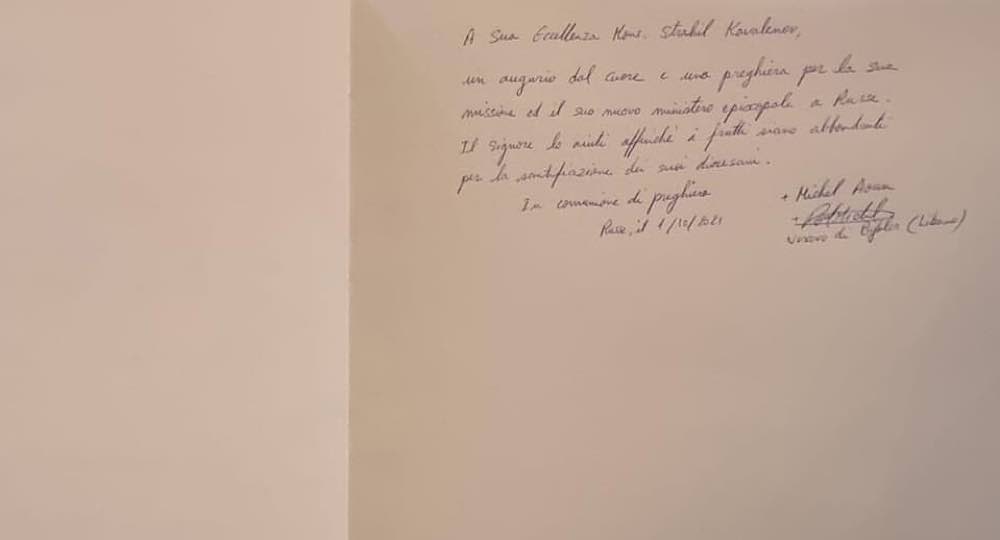 A Sua Eccellenza Mons. Strahil Kavalenov,
un augurio dal cuore e una preghiera per la sua
missione ed il suo nuovo ministero episcopale a Russe.
Il Signore lo aiuti affinché i frutti siano abbondanti
per la santificazione dei suoi diocesani.
In comunione di preghiera
Russe, il 1/10/2021
+ Michel Aoun
Vescovo di Byblos (Libano)